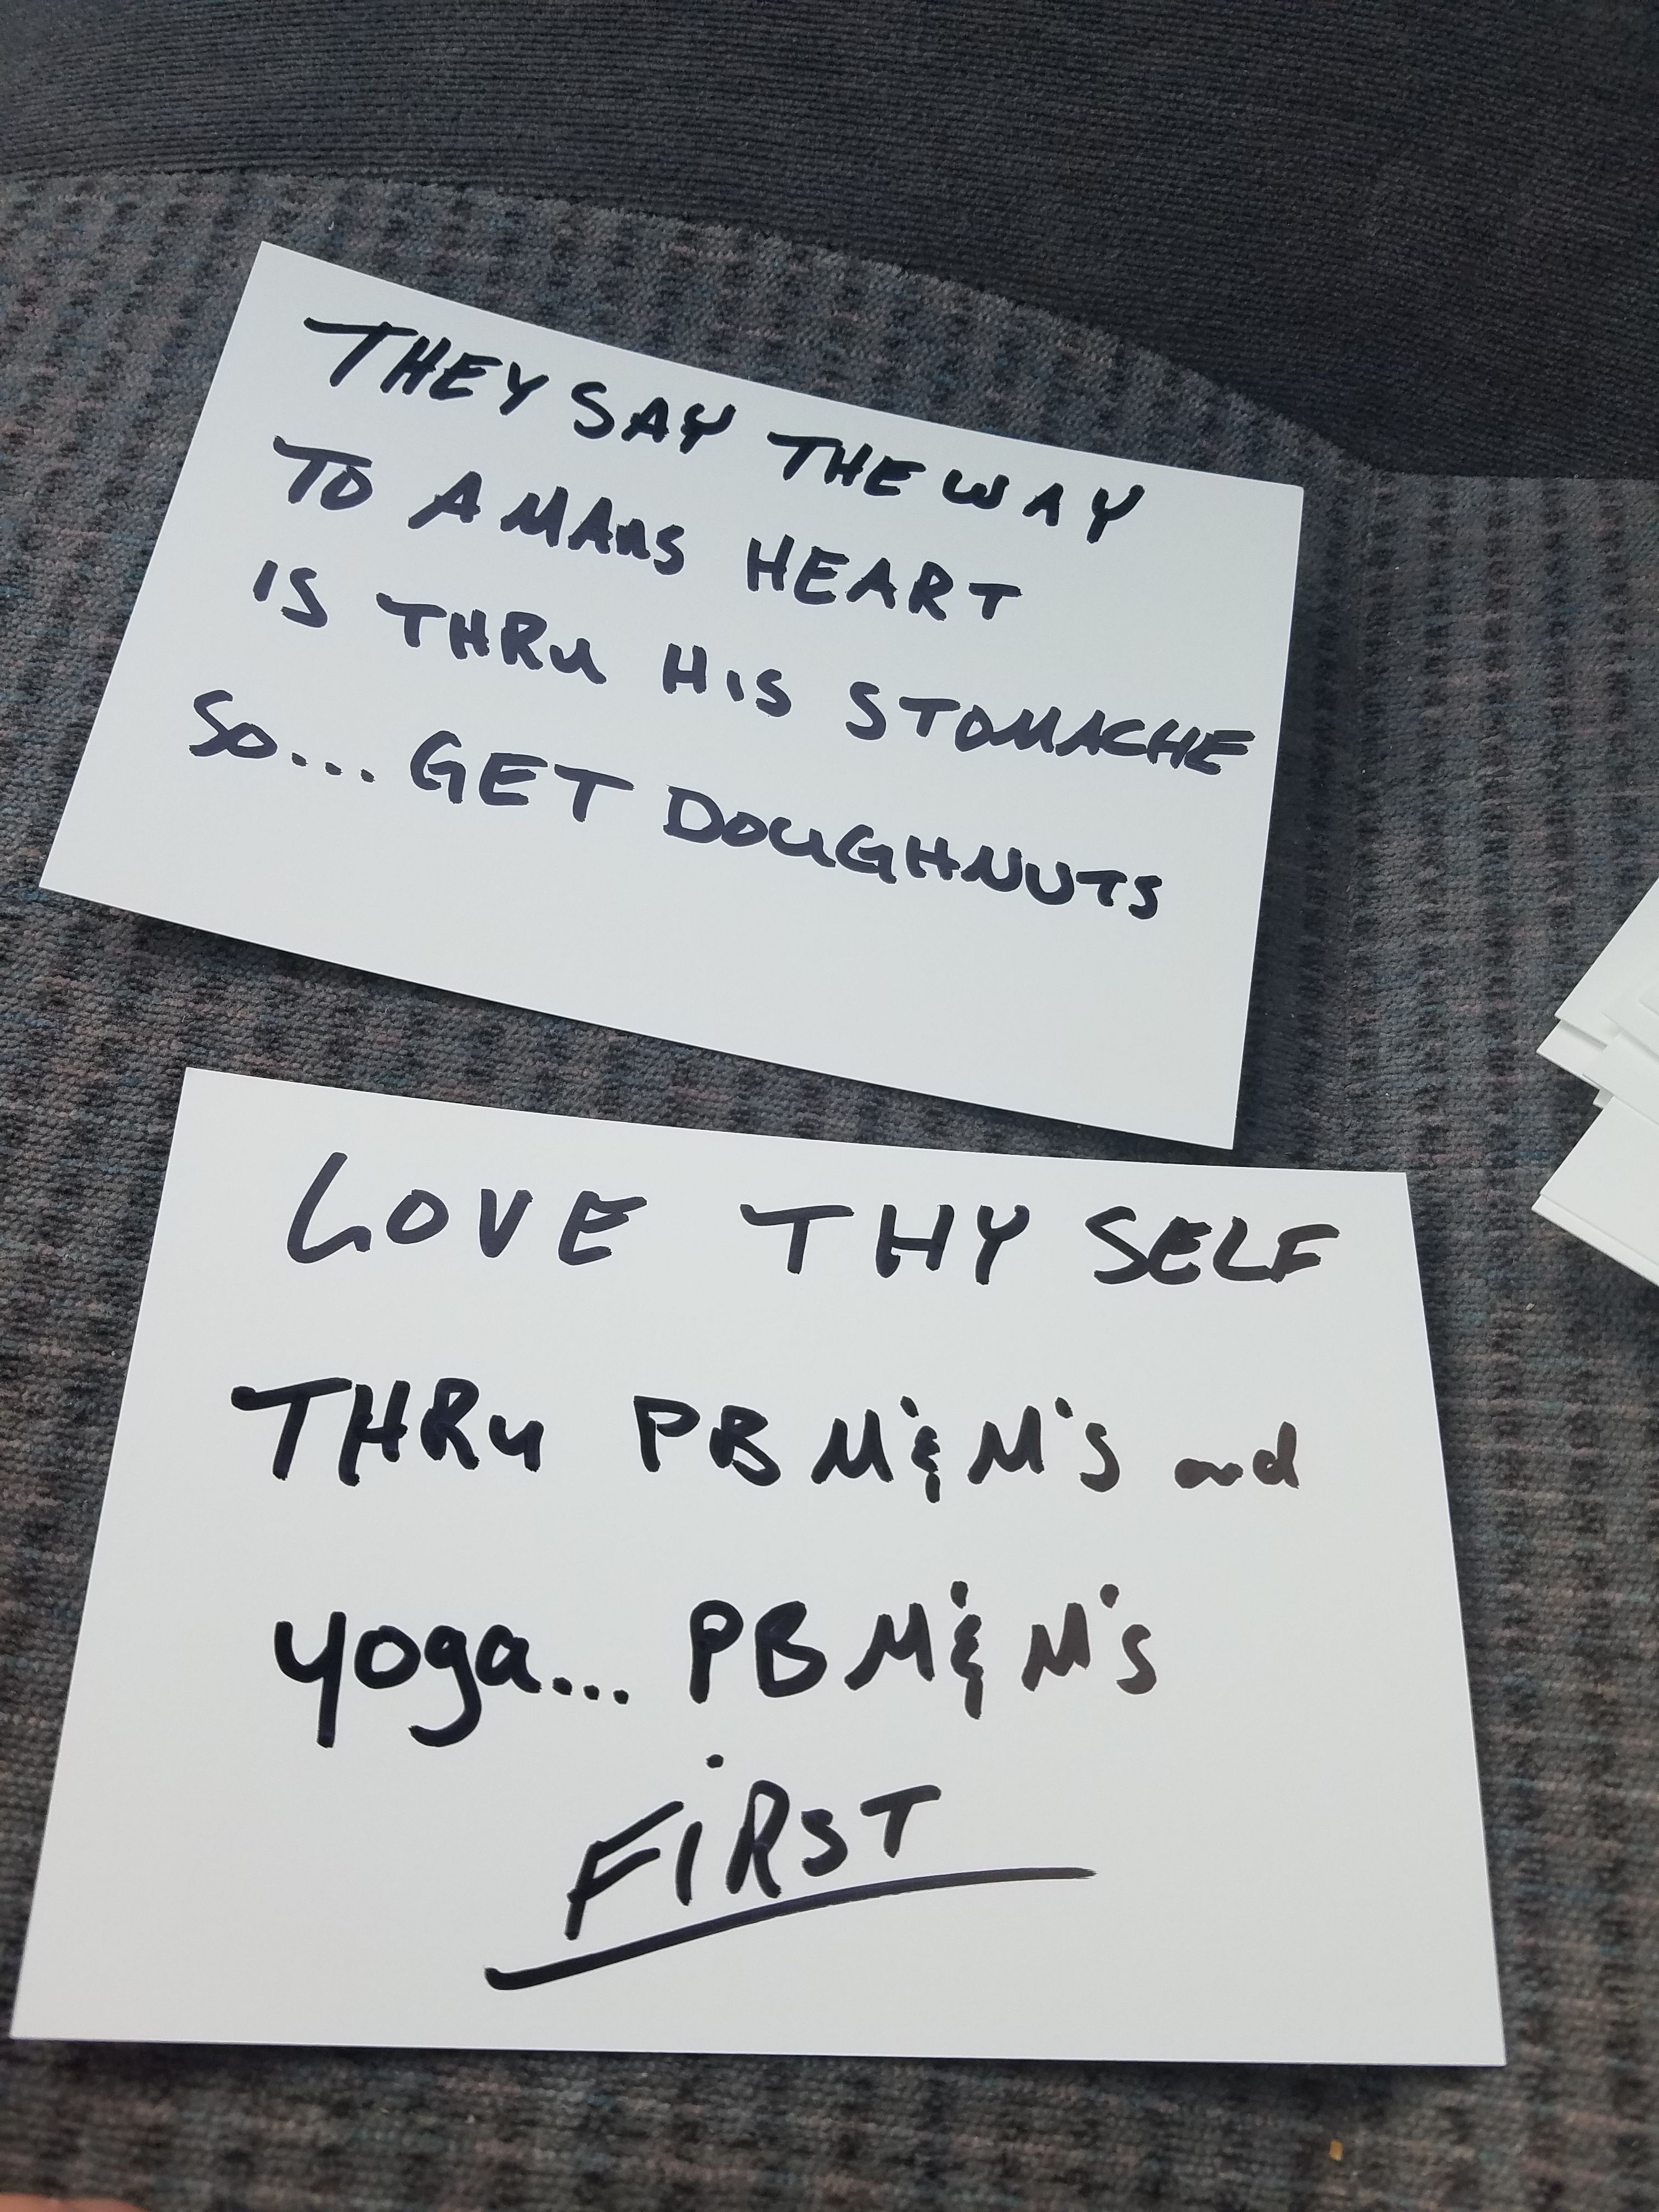 THEY SAY THE WAY
TO A MANS HEART
IS THRU HIS STOMACHE
SO... GET DOUGHNUTS
LOVE THY SELF
THRU PB M&M'S and
yoga... PB M&M'S
FiRST